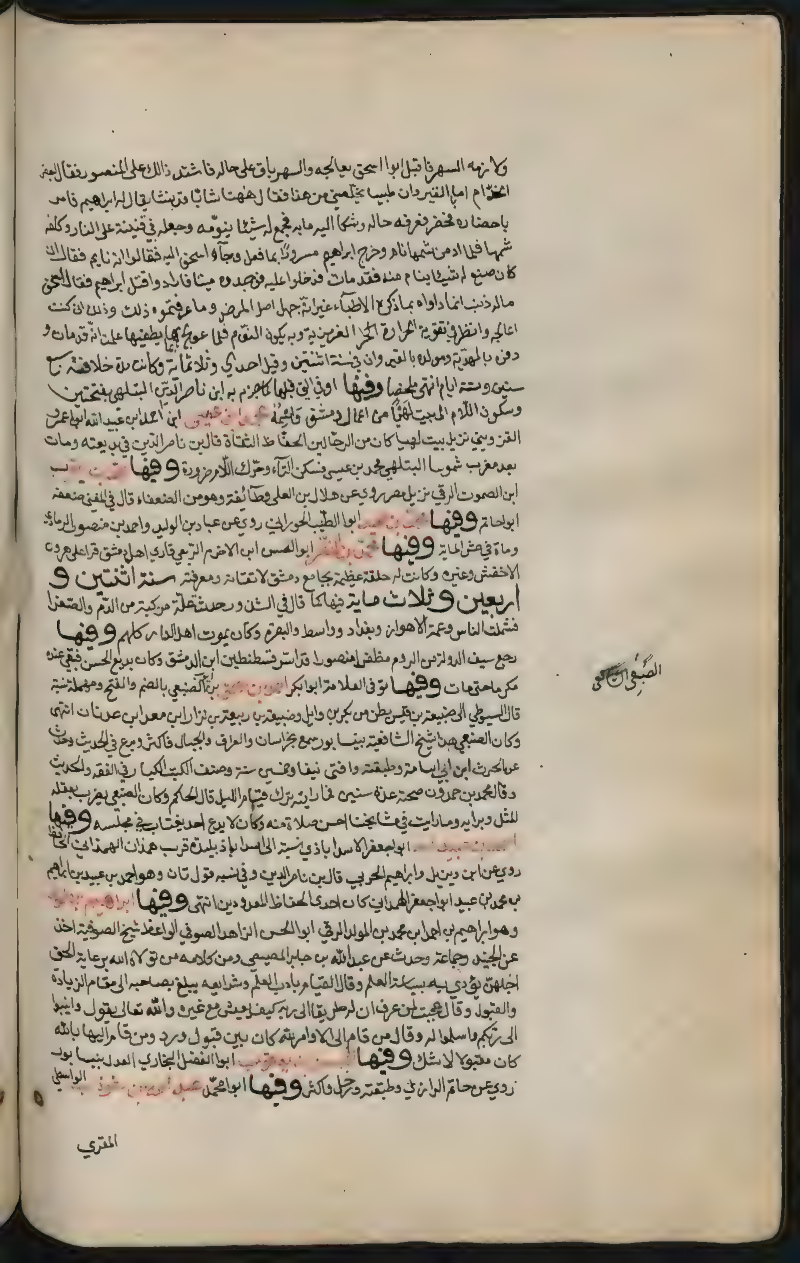 ولازمه السهر فاقبل ابوا اسحق يعالجه والسهر باق على حاله فاشتد ذالك على المنصور فقال لبعض
الخدام اما بالقيروان طبيب يخلصني من هذا فقال ههنا شاب قد نشا يقال له ابراهيم فامر
باحضاره فحضر فعرفه حاله وشكا اليه ما به فجمع له شيئا ينومه وجعله في قنينة على النار وكلفه
شمها فلما ادمن شمها نام وخرج ابراهيم مسرورا بما فعل وجاء اسحق اليه فقالوا انه نايم فقال ان
كان صنع له شيئا ينام منه فقد مات فدخلوا عليه فوجدوه ميتا فاراد واقتل ابراهيم فقال اسحق
ماله ذنب انما داواه بما ذكره الاطباء غير انه جهل اصل المرض وما عرفتموه ذلك وذلك اني كنت
اعالجه وانظر في تقوية الحرارة الغريزية وبه يكون النوم فلما عولج بما يطفيها علمت انه قد مات و
دفن بالمهدية ومولده بالقيروان في سنة اثنتين وقيل احدى وثلاثمائة وكانت مدة خلافته سبع
سنين وستة ايام انتهى ملخصا وفيها او في التي قبلها كما جزم به ابن ناصر الدين البتلهي بفتحتين
وسكون اللام الى بيت لهيا من اعمال دمشق محمد ابن عيسى ابن احمد ابن عبيد الله ابو عمرو
القزويني نزيل بيت لهيا كان من الرحالين الحفاظ الثقاة قال ابن ناصر الدين في بديعته ومات
بعد مغرب شموسا البتلهي محمد بن عيسى فسكن التاء وحرك اللام ضرورة وفيها
ابن الصموت الرقي نزيل مصر روى عن هلال بن العلى وطائفة وهو من الضعفاء قال في المغني ضعفه
ابو حاتم وفيها ابوا الطيب الحوراني روى عن عباد بن الوليد واحمد بن منصور الرمادي
ومات في عشر المائة وفيها ابو الحسن ابن الاخرم الربعي قاري اهل دمشق قرا على هرون
الاخفش وغيره وكانت له حلقة عظيمة بجامع دمشق لاتقانه ومعرفته سنة اثنتين و
اربعين وثلاث ماية فيها كما قال في الشذور حدثت علة مركبة من الدم والصفرا
فشملت الناس وعمت الاهواز وبغداد وواسط والبصرة وكان يموت اهل الدار كلهم وفيها
رجع سيف الدولة من الروم مظفرا منصورا قد اسر قسطنطين ابن الدمستق وكان بديع الحسن فبقي عنده
مكرما حتى مات وفيها توفي العلامة ابو بكر احمد بن اسحق بن الصبغي بالضم والفتح ومهملة نسبة
قال السيوطي الى ضبيعة بن قيس بطن من بكر بن وايل وضبيعة بن ربيعة بن نزار ابن معد ابن عدنان انتهى
وكان الصبغي هذا شيخ الشافعية بنيسابور سمع بخراسان والعراق والجبال فاكثر وبرع في الحديث وحدث
عن الحرث ابن ابي اسامة وطبقته وافتى نيفا وخمسين سنة وصنف الكتب الكبار في الفقه والحديث
وقال محمد بن حمدون صحبته عدة سنين فما رايته ترك قيام الليل قال الحاكم وكان الصبغي يضرب بعقله
المثل وبرايه وما رايت في مشايخنا احسن صلاة منه وكان لا يدع احد يغتاب في مجلسه وفيها
احمد بن عبيد ابو جعفر الاسدابادي نسبة الى اسداباذ بليدة قرب همدان الهمداني الحافظ
روى عن ابن ديزيل وابراهيم الحربي قال بن ناصر الدين وفي نسبه قول ثان وهو احمد بن عبيد بن ابراهيم
بن محمد بن عبيد ابو جعفر الهمداني كان احدى الحفاظ المعدودين انتهى وفيها ابراهيم بن المولد
وهو ابراهيم بن احمد ابن محمد بن المولد الرقي ابوا الحسن الزاهد الصوفي الواعظ شيخ الصوفية اخذ
عن الجنيد وجماعة وحدث عن عبد الله بن جابر المصيصي ومن كلامه من تولاه الله برعاية الحق
اجل من يؤدي به بسياسة العلم وقال القيام باداب العلم وشرايعه يبلغ بصاحبه الى مقام الزيادة
والقبول وقال عجبت لمن عرف ان له طريقا الى ربه كيف يعيش مع غيره والله تعالى يقول وانيبوا
الى ربكم واسلموا له وقال من قام الى الاوامر لله كان بين قبول ورد ومن قام اليها بالله
كان مقبولا لا شك وفيها الحسن بن يعقوب ابوا الفضل البخاري العدل بنيسابور
روى عن حاتم الرازي وطبقته ورحل واكثر وفيها ابو محمد عبد الله بن شوذب الواسطي
المقري
الصبغي الشافعي